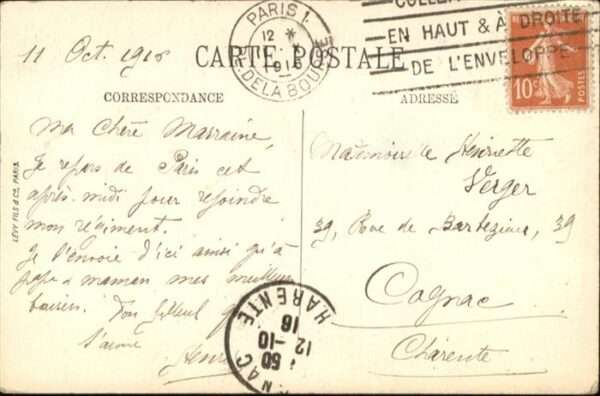 11 Oct. 1916
CARTE POSTALE
PARIS 1.
12 *
R. DE LA BOURSE
COLLEZ
EN HAUT & À DROITE
DE L'ENVELOPPE
10c
POSTES
CORRESPONDANCE
ADRESSÉ
LÉVY FILS & Cie, PARIS
Ma Chère Marraine,
Je repars de Paris cet
après-midi pour rejoindre
mon régiment.
Je t'envoie d'ici ainsi qu'à
papa & maman mes meilleurs
baisers. Ton filleul
t'aime
Henri
Mademoiselle Henriette
Verger
39, Rue de Barbezieux, 39
Cognac
Charente
NAC
CHARENTE
50
12-10
16